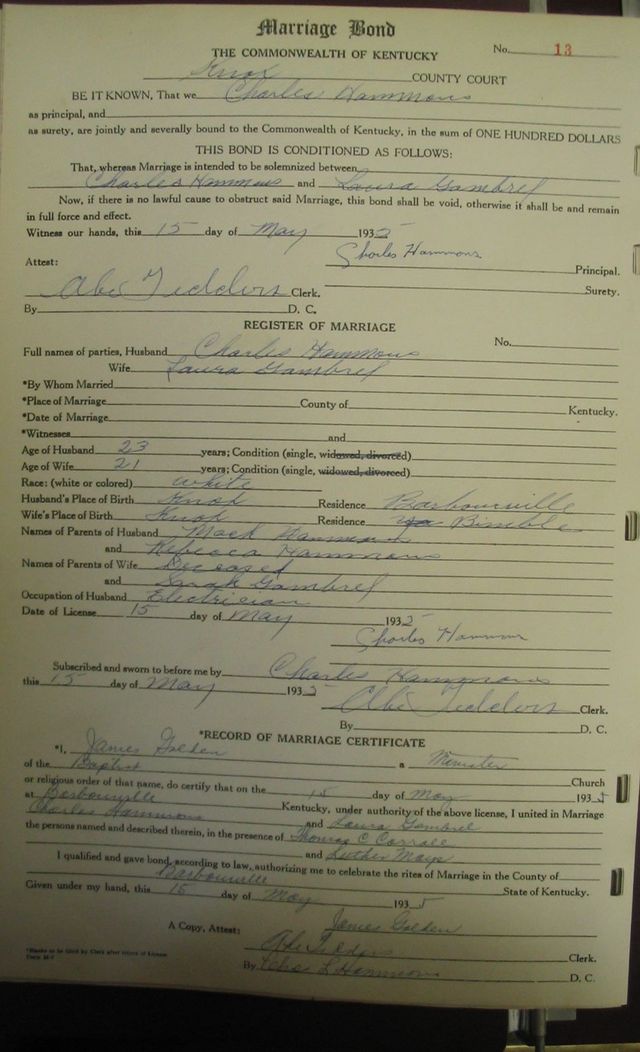 Marriage Bond
THE COMMONWEALTH OF KENTUCKY No. 13
Knox COUNTY COURT
BE IT KNOWN, That we Charles Hammons
as principal, and
as surety, are jointly and severally bound to the Commonwealth of Kentucky, in the sum of ONE HUNDRED DOLLARS
THIS BOND IS CONDITIONED AS FOLLOWS:
That, whereas Marriage is intended to be solemnized between
Charles Hammons and Laura Gambrel
Now, if there is no lawful cause to obstruct said Marriage, this bond shall be void, otherwise it shall be and remain
in full force and effect.
Witness our hands, this 15 day of May 1935
Charles Hammons
Attest: Principal.
Abe Tedders Clerk. Surety.
By D. C.
REGISTER OF MARRIAGE
Full names of parties, Husband Charles Hammons No.
Wife Laura Gambrel
*By Whom Married
*Place of Marriage County of Kentucky.
*Date of Marriage
*Witnesses and
Age of Husband 23 years; Condition (single, widowed, divorced)
Age of Wife 21 years; Condition (single, widowed, divorced)
Race: (white or colored) white
Husband's Place of Birth Knox Residence Barbourville
Wife's Place of Birth Knox Residence Bimble
Names of Parents of Husband Mack Hammons
and Rebecca Hammons
Names of Parents of Wife Deceased
and Sarah Gambrel
Occupation of Husband Electrician
Date of License 15 day of May 1935
Charles Hammons
Subscribed and sworn to before me by Charles Hammons
this 15 day of May 1935
Abe Tedders Clerk.
By D. C.
*RECORD OF MARRIAGE CERTIFICATE
*I, James Golden a Minister
of the Baptist Church
or religious order of that name, do certify that on the 15 day of May 1935
at Barbourville Kentucky, under authority of the above license, I united in Marriage
Charles Hammons and Laura Gambrel
the persons named and described therein, in the presence of Thomas C
and Luther Mays
I qualified and gave bond, according to law, authorizing me to celebrate the rites of Marriage in the County of
Barbourville State of Kentucky.
Given under my hand, this 15 day of May 1935
James Golden
A Copy, Attest: Abe Tedders Clerk.
By L Hammons D. C.
*Blanks to be filled by Clerk after return of License